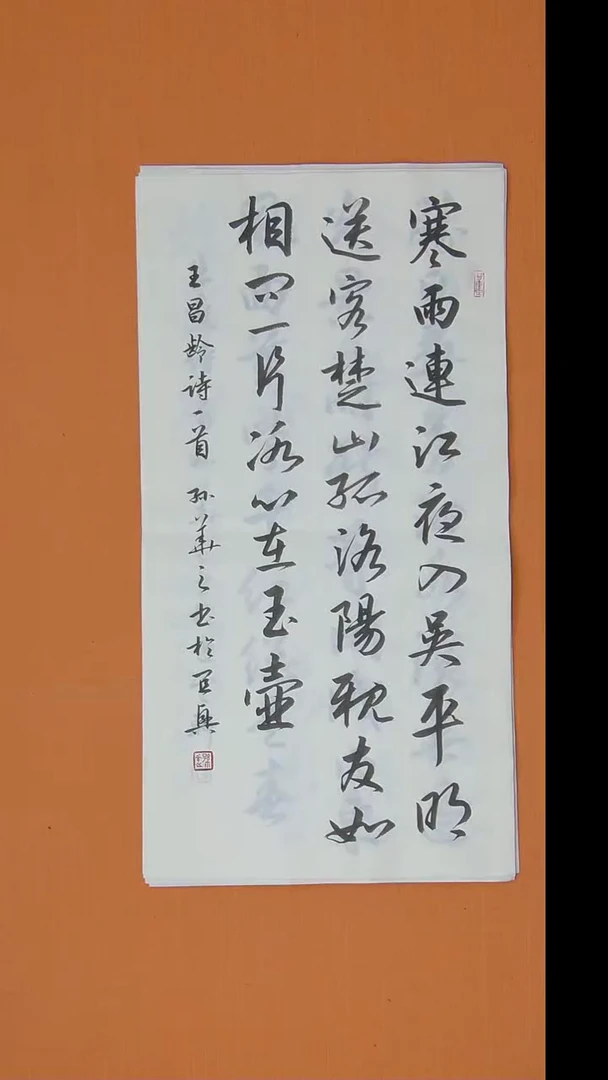 寒雨連江夜入吳平明
送客楚山孤洛陽親友如
相問一片冰心在玉壺
王昌齡詩一首 孫華之书於宜興